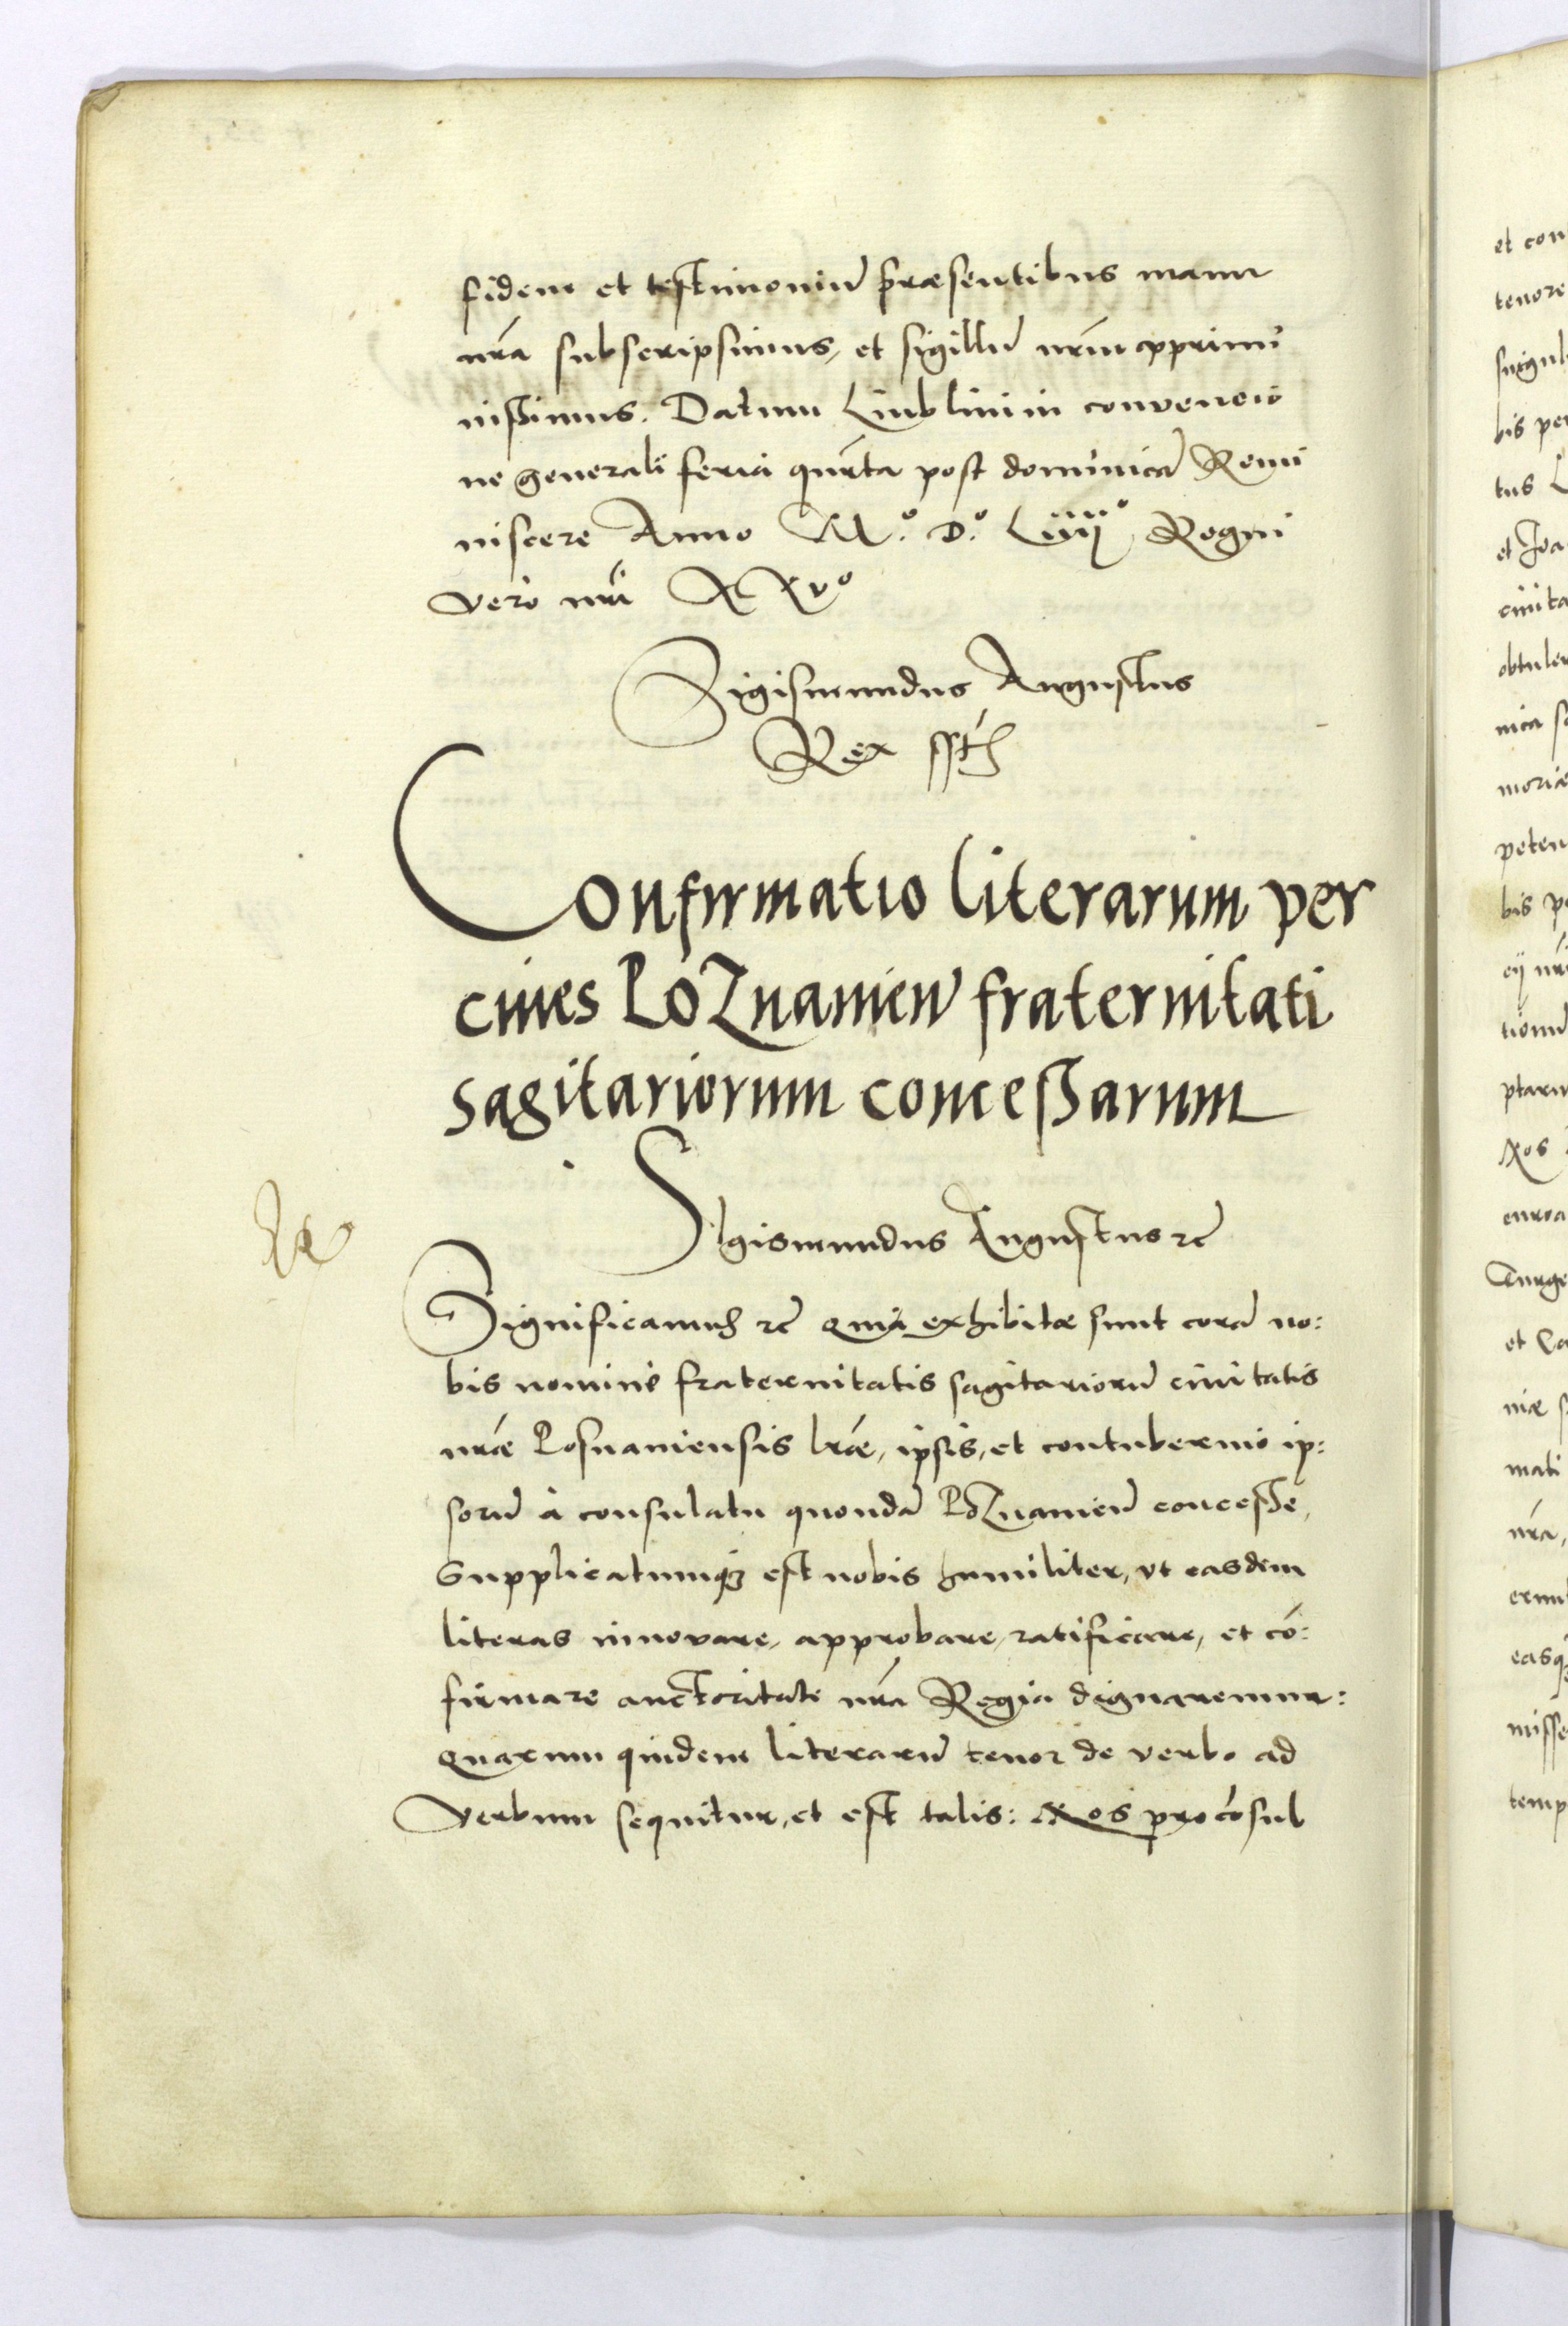 fidem et testimoniũ præsentibus manu
nrã subscripsimus, et sigillũ nrm̃ apprimi
nissimus. Datum Liublini in convencio
ne generali feria quarta post dominicã Remi
niscere Anno M.º D.º Liiij.º Regni
vero nri XXvº
Sigismundus Augustus
Rex sst
Confirmatio literarum per
ciues PoZnanień fraternitati
sagitariorum concessarum
SIgismundus Augustus etc̃
Significamus etc̃ Quia exhibitæ sunt corã no:
bis nomine fraternitatis sagitariorũ ciuitatis
nræ̃ Posnaniensis lræ̃, ipsis, et contubernio ip:
sorũ à consulatu quondã PoZnanień concessæ,
Supplicatumqꝫ est nobis humiliter, vt easdem
literas innovare, approbare, ratificare, et cõ:
firmare auctoritate nrã Regia dignaremur:
Quarum quidem literarũ tenor de verbo ad
verbum sequitur, et est talis: Nos procõsul
et con
tenore
singul
bis pe
tus L
et Joa
ciuita
obtuler
nica s
moriæ
peten
bis p
cij nr̃i
tionũ
ptaru
Nos
enroa
et Ca
niæ s
mati
nrã,
easqꝫ
misse
temp